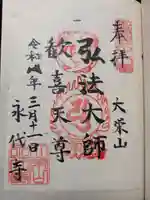 奉拝
大栄山
弘法大師
歓喜天尊
令和四年
三月十一日
永代寺